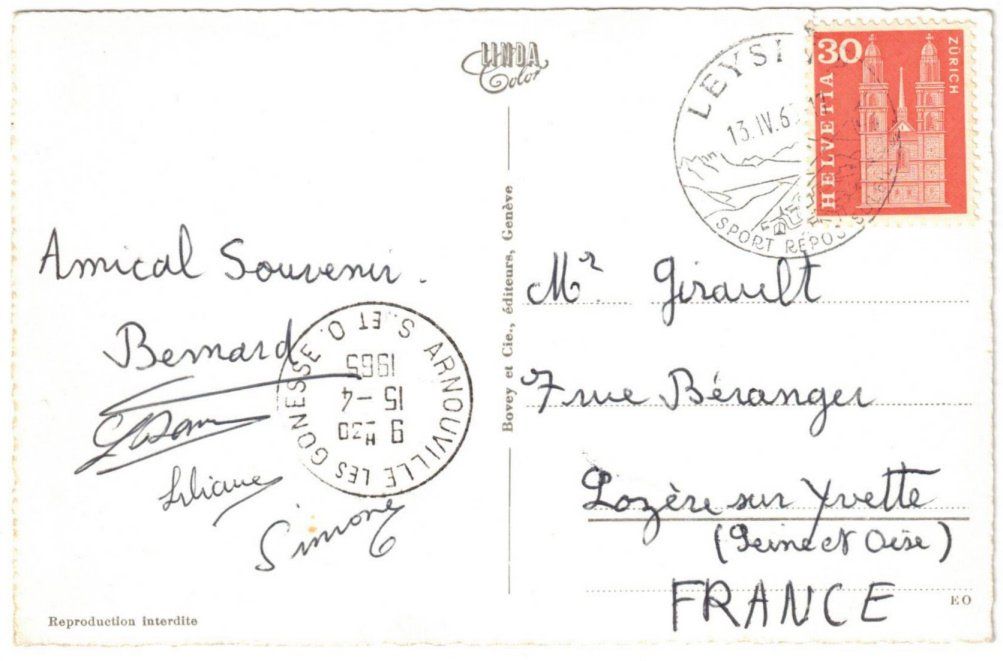 LINDA
Color
30
ZÜRICH
HELVETIA
LEYSIN
13.IV.65
SPORT REPOS
Amical Souvenir.
Bernard
Liliane
Simone
ARNOUVILLE LES GONESSE S. ET O.
9 H20
15 -4
1965
Bovey et Cie., éditeurs, Genève
Mr. Girault
7 rue Béranger
Lozère sur Yvette
(Seine et Oise)
FRANCE
EO
Reproduction interdite